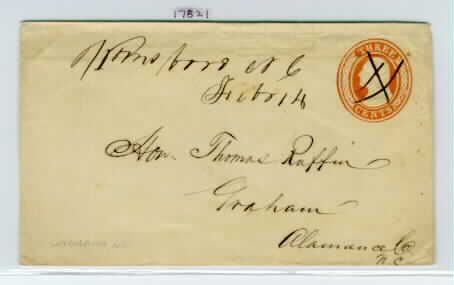 17821
N C
Feb 14
THREE
CENTS
Hon. Thomas Ruffin
Graham
Alamance Co
N C